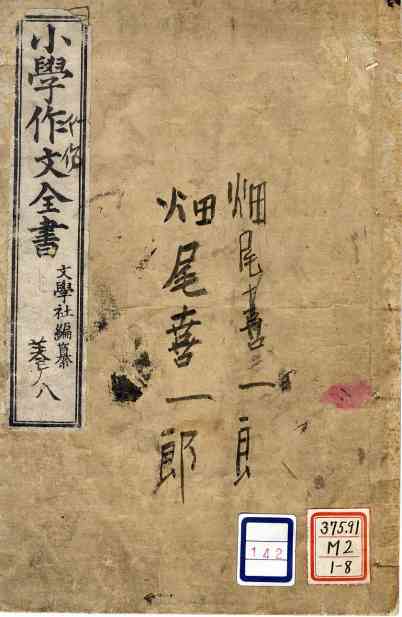 小學作文全書
文學社編纂
巻八
作
畑尾喜一郎
畑尾喜一郎
142
375.91
M2
1-8